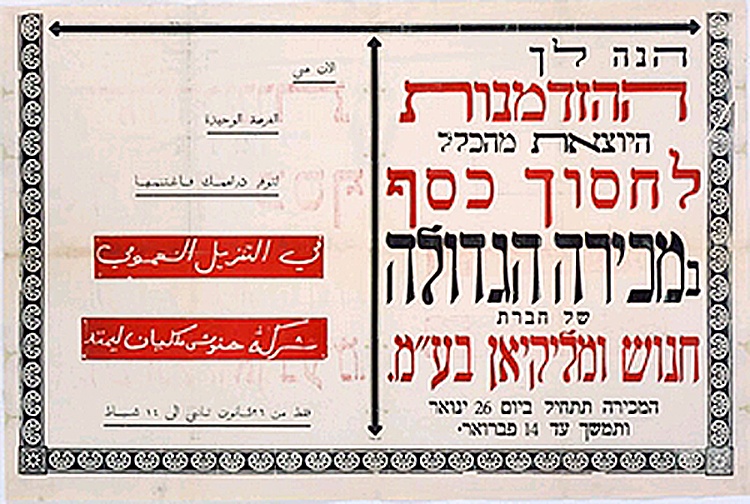 הנה לך
ההזדמנות
היוצאת מהכלל
לחסוך כסף
במכירה הגדולה
של חברת
חנוש ומליקיאן בע"מ.
המכירה תתחיל ביום 26 ינואר
ותמשך עד 14 פברואר.
الان هي
الفرصة الوحيدة
لتوفر دراهمك فاغتنمها
في التنزيل العمومي
شركة حنوش ملكيان ليمتد
فقط من ٢٦ كانون ثاني الى ١٤ شباط